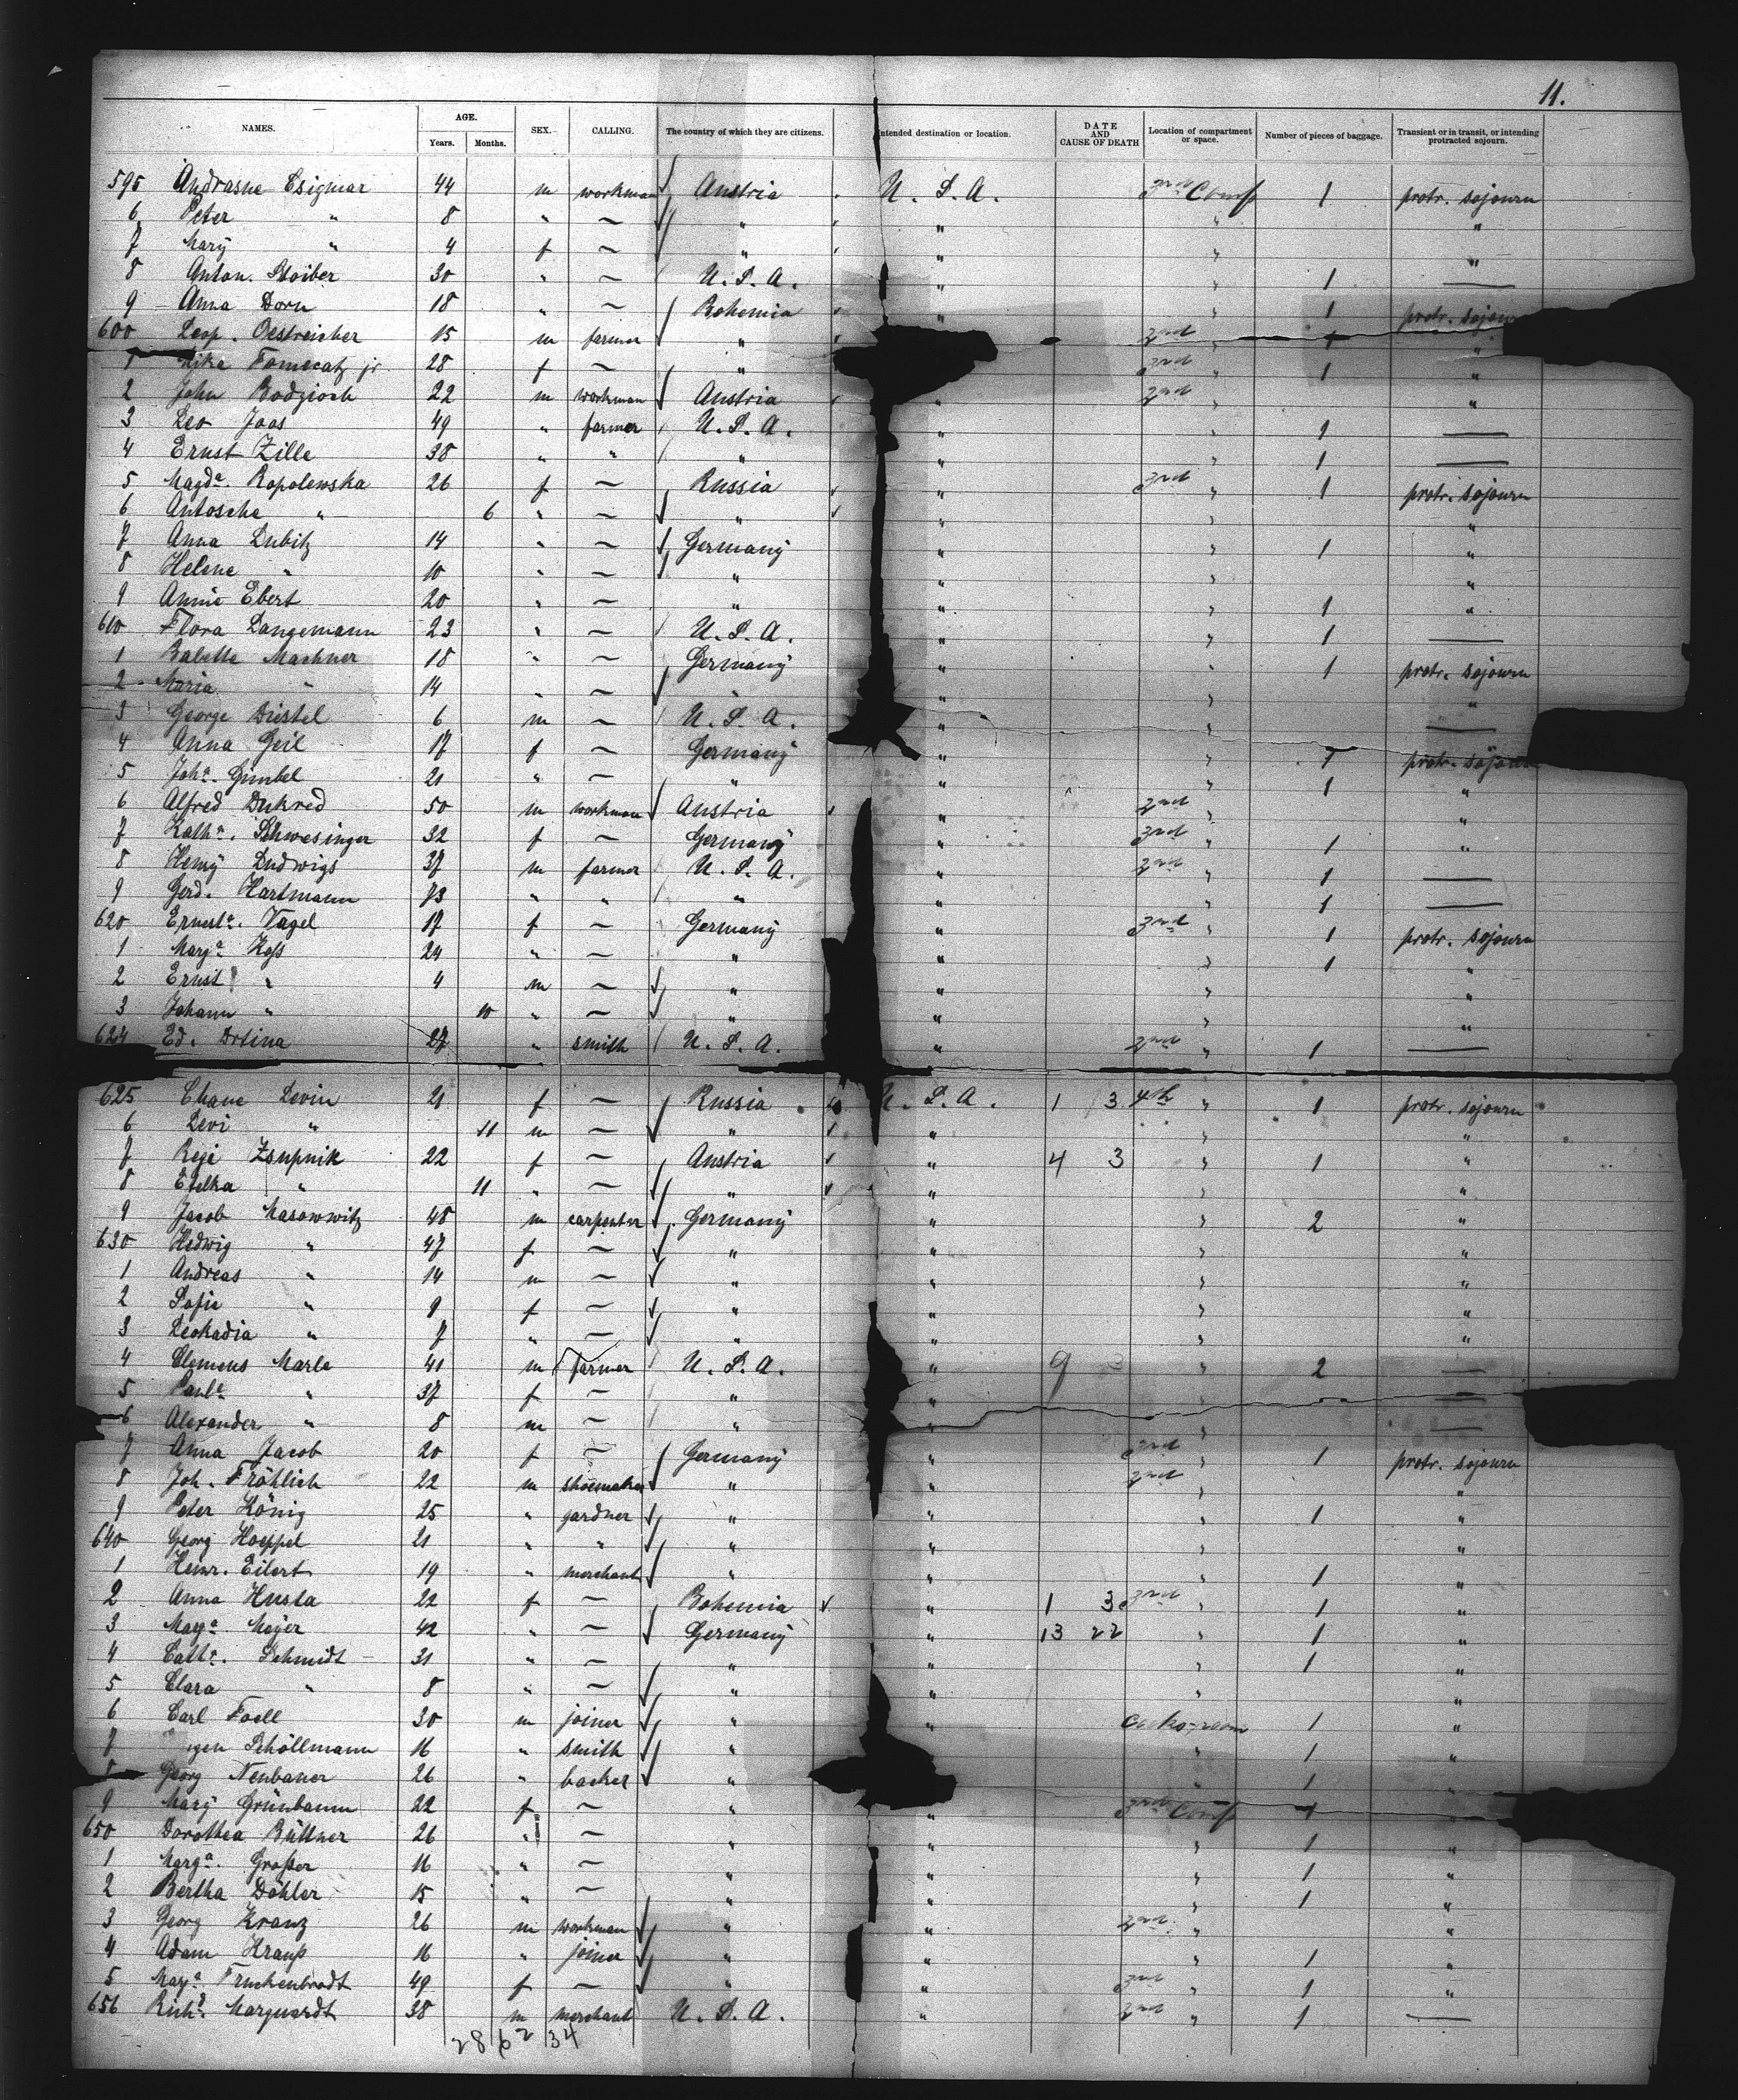 11.
NAMES. AGE. SEX. CALLING. The country of which they are citizens. Intended destination or location. DATE AND CAUSE OF DEATH Location of compartment or space. Number of pieces of baggage. Transient or in transit, or intending protracted sojourn.
Years. Months.
595 Andrasne Csigmar 44 m workman Austria U. S. A. 3rd Comp 1 protr. sojourn
6 Peter " 8 " — " " " "
7 Mary " 4 f — " " " "
8 Anton. Stoiber 30 " — U. S. A. " " 1 —
9 Anna Dorn 18 " — Bohemia " " 1 protr. sojourn
600 Leop. Oestreicher 15 m farmer " " 2nd " 1 "
1 Fomecatz jr 28 f — " " 3rd " 1 "
2 John Bodzioch 22 m workman Austria " 2nd " "
3 Leo Joas 49 " farmer U. S. A. " " 1 —
4 Ernst Zille 38 " " " " " 1 —
5 Magda. Kopolewska 26 f — Russia " 3rd " 1 protr. sojourn
6 Antosche " 6 " — " " " "
7 Anna Lubitz 14 " — Germany " " 1 "
8 Helene " 10 " — " " " "
9 Annie Ebert 20 " — " " " 1 "
610 Flora Langemann 23 " — U. S. A. " " 1 —
1 Babette Machner 18 " — Germany " " 1 protr. sojourn
2 Maria " 14 " — " " " "
3 George Distel 6 m — U. S. A. " " —
4 Anna Geil 17 f — Germany " " 1 protr. sojourn
5 Joha. Gimbel 21 " — " " " 1 "
6 Alfred Dukred 50 m workman Austria " 2nd " "
7 Katha. Schwesinger 32 f — Germany " 3rd " 1 "
8 Henry Ludwigs 37 m farmer U. S. A. " 2nd " 1 —
9 Gerd. Hartmann 73 " " " " " 1 —
620 Erneste. Vagel 17 f — Germany " 3rd " 1 protr. sojourn
1 Marga Koß 24 " — " " " 1 "
2 Ernst " 4 m — " " " "
3 Johann " 10 " — " " " "
624 Ed. Drtina 27 " smith U. S. A. " 2nd " 1 —
625 Chane Levin 21 f — Russia U. S. A. 1 3 4th " 1 protr. sojourn
6 Levi " 11 m — " " " "
7 Reje Zsupnik 22 f — Austria " 4 3 " 1 "
8 Etelka " 11 " — " " " "
9 Jacob Masowwitz 48 m carpenter Germany " " 2 "
630 Hedwig " 47 f — " " " "
1 Andreas " 14 m — " " " "
2 Sofie " 9 f — " " " "
3 Leokadia " 7 " — " " " "
4 Clemens Marle 41 m farmer U. S. A. " 9 3 " 2 —
5 Paule " 37 f — " " " —
6 Alexander " 8 m — " " " —
7 Anna Jacob 20 f — Germany " 3rd " 1 protr. sojourn
8 Joh. Fröhlich 22 m shoemaker " " 2nd " "
9 Peter König 25 " gardner " " " 1 "
640 Georg Hoeppel 21 " " " " " "
1 Heinr. Eilert 19 " merchant " " " 1 "
2 Anna Husta 22 f — Bohemia " 1 3 3rd " 1 "
3 Marga. Mayer 42 " — Germany " 13 22 " 1 "
4 Catha. Schmidt 31 " — " " " 1 "
5 Clara " 8 " — " " " "
6 Carl Foell 30 m joiner " " 1 "
7 Schöllmann 16 " smith " " " 1 "
8 Georg Neubauer 26 " backer " " " 1 "
9 Mary Grünbaum 22 f — " " 3rd Comp 1 "
650 Dorothea Büttner 26 " — " " " 1 "
1 Marga. Großer 16 " — " " " 1 "
2 Bertha Döhler 15 " — " " " 1 "
3 Georg Kranz 26 m workman " " 2nd " "
4 Adam Krauß 16 " joiner " " " 1 "
5 Marga. Truckenbrodt 49 f — " " 3rd " 1 "
656 Richd. Marquardt 38 m merchant U. S. A. " 2nd " 1 —
28 62 34